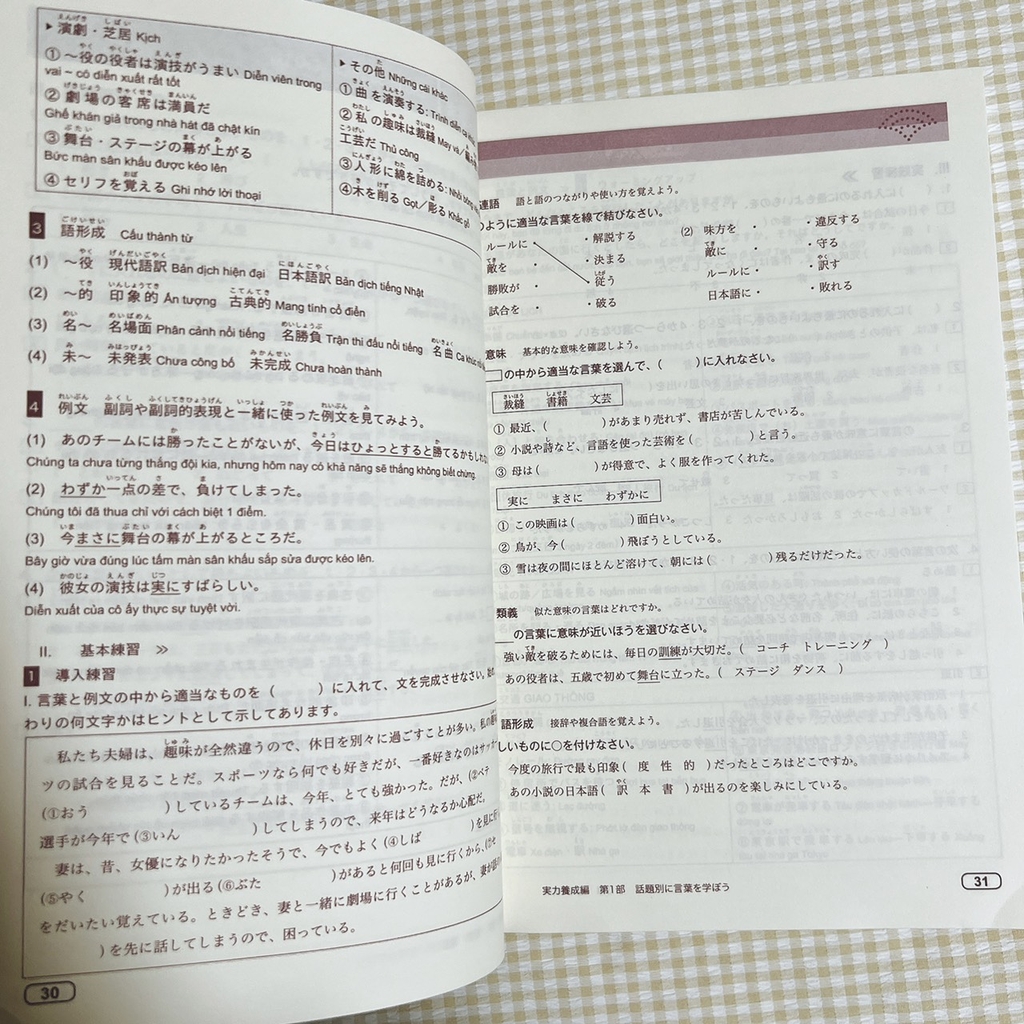 ▶ 演劇・芝居 Kịch
① ～役の役者は演技がうまい Diễn viên trong
vai ~ có diễn xuất rất tốt
② 劇場の客席は満員だ
Ghế khán giả trong nhà hát đã chật kín
③ 舞台・ステージの幕が上がる
Bức màn sân khấu được kéo lên
④ セリフを覚える Ghi nhớ lời thoại
▶ その他 Những cái khác
① 曲を演奏する: Trình diễn ca
② 私の趣味は裁縫 May vá／
工芸だ Thủ công
③ 人形に綿を詰める: Nhồi bông
④ 木を削る Gọt／彫る Khắc gỗ
3 語形成 Cấu thành từ
(1) ～役 現代語訳 Bản dịch hiện đại 日本語訳 Bản dịch tiếng Nhật
(2) ～的 印象的 Ấn tượng 古典的 Mang tính cổ điển
(3) 名～ 名場面 Phân cảnh nổi tiếng 名勝負 Trận thi đấu nổi tiếng 名曲 Ca khúc
(4) 未～ 未発表 Chưa công bố 未完成 Chưa hoàn thành
4 例文 副詞や副詞的表現と一緒に使った例文を見てみよう。
(1) あのチームには勝ったことがないが、今日はひょっとすると勝てるかもしれな
Chúng ta chưa từng thắng đội kia, nhưng hôm nay có khả năng sẽ thắng không biết chừng.
(2) わずか一点の差で、負けてしまった。
Chúng tôi đã thua chỉ với cách biệt 1 điểm.
(3) 今まさに舞台の幕が上がるところだ。
Bây giờ vừa đúng lúc tấm màn sân khấu sắp sửa được kéo lên.
(4) 彼女の演技は実にすばらしい。
Diễn xuất của cô ấy thực sự tuyệt vời.
II. 基本練習 ≫
1 導入練習
I. 言葉と例文の中から適当なものを（ ）に入れて、文を完成させなさい。
わりの何文字かはヒントとして示してあります。
私たち夫婦は、趣味が全然違うので、休日を別々に過ごすことが多い。私の
ツの試合を見ることだ。スポーツなら何でも好きだが、一番好きなのはサッカ
(①おう ）しているチームは、今年、とても強かった。だが、(②ベテ
選手が今年で (③いん ）してしまうので、来年はどうなるか心配だ。
妻は、昔、女優になりたかったそうで、今でもよく (④しば ）を見に行
(⑤やく ）が出る (⑥ぶた ）があると何回も見に行くから、(⑦せ
をだいたい覚えている。ときどき、妻と一緒に劇場に行くことがあるが、妻が
）を先に話してしまうので、困っている。
30
連語 語と語のつながりや使い方を覚えよう。
のように適当な言葉を線で結びなさい。
ルールに ・解説する
敵を・ ・決まる
勝敗が・ 従う
試合を・ ・破る
(2) 味方を ・ ・違反する
敵に ・ ・守る
ルールに・ ・訳す
日本語に・ ・敗れる
意味 基本的な意味を確認しよう。
の中から適当な言葉を選んで、（ ）に入れなさい。
裁縫 書籍 文芸
① 最近、（ ）があまり売れず、書店が苦しんでいる。
② 小説や詩など、言語を使った芸術を（ ）と言う。
③ 母は（ ）が得意で、よく服を作ってくれた。
実に まさに わずかに
① この映画は（ ）面白い。
② 鳥が、今（ ）飛ぼうとしている。
③ 雪は夜の間にほとんど溶けて、朝には（ ）残るだけだった。
類義 似た意味の言葉はどれですか。
の言葉に意味が近いほうを選びなさい。
強い敵を破るためには、毎日の訓練が大切だ。（ コーチ トレーニング ）
あの役者は、五歳で初めて舞台に立った。（ ステージ ダンス ）
語形成 接辞や複合語を覚えよう。
しいものに○を付けなさい。
今度の旅行で最も印象（ 度 性 的 ）だったところはどこですか。
あの小説の日本語（ 訳 本 書 ）が出るのを楽しみにしている。
実力養成編 第1部 話題別に言葉を学ぼう
31